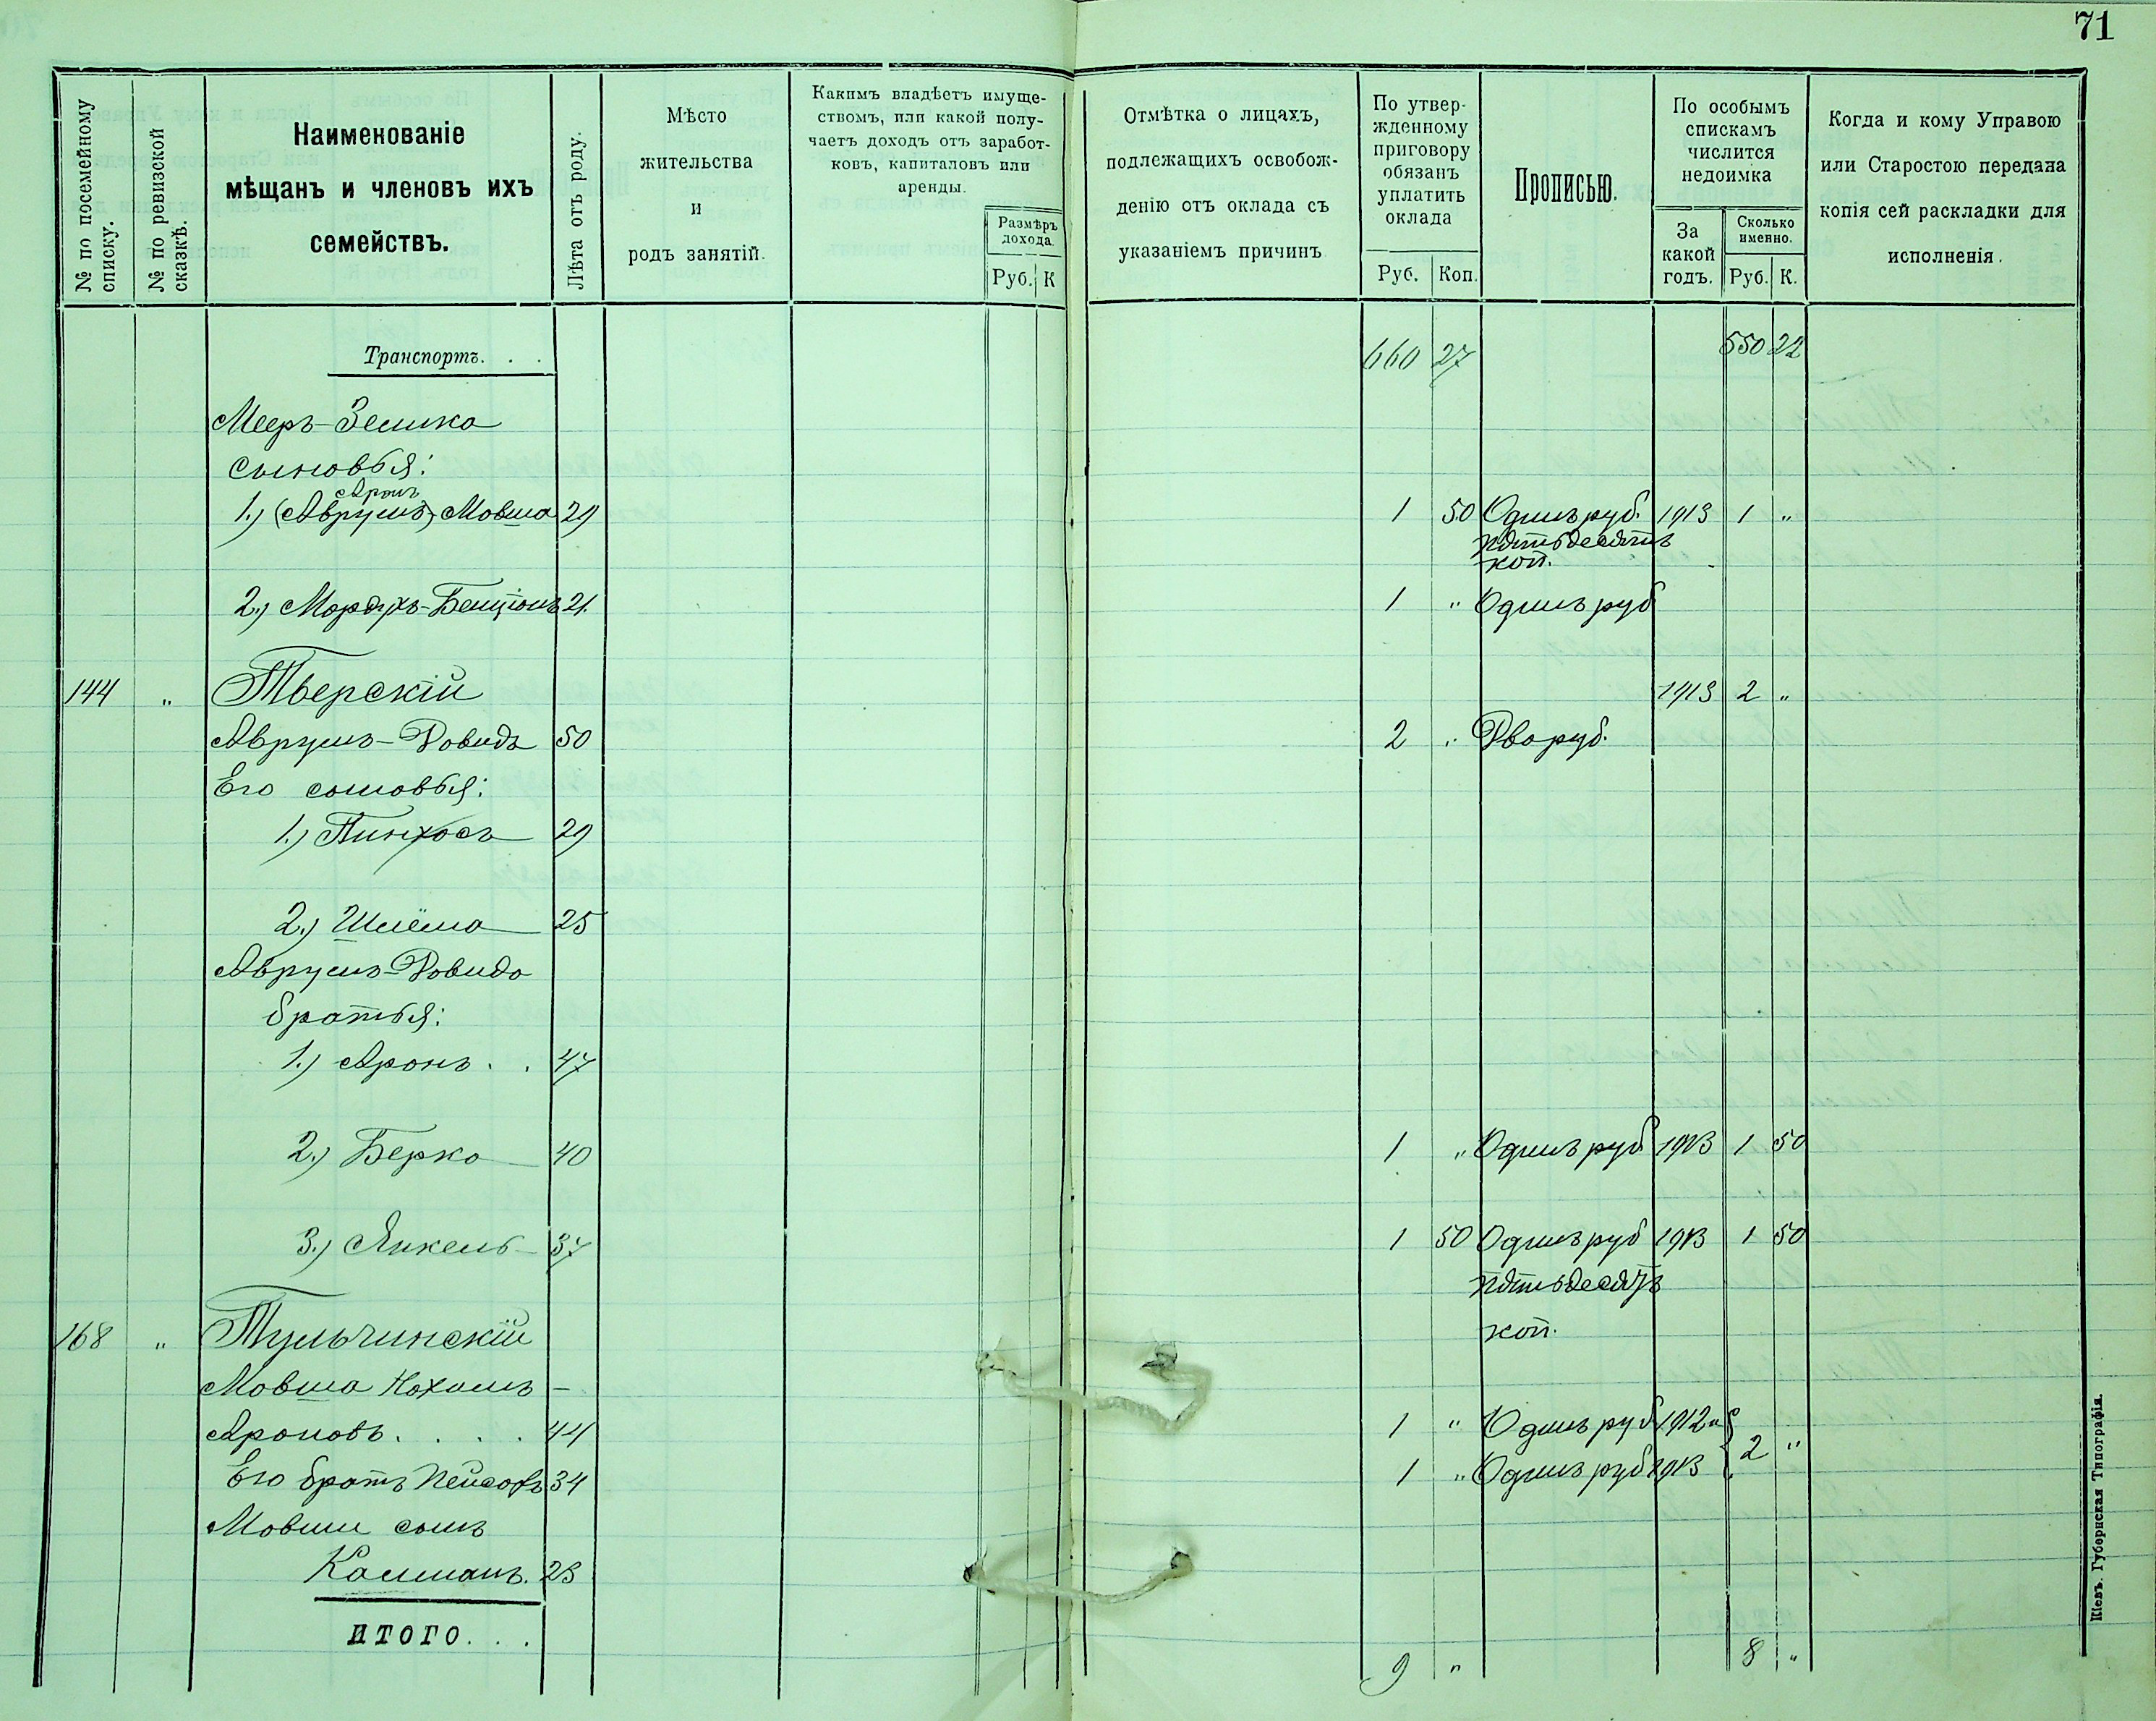 71
№ по посемейному списку.
№ по ревизской сказкѣ.
Наименованіе
мѣщанъ и членовъ ихъ
семействъ.
Лѣта отъ роду.
Мѣсто
жительства
и
родъ занятій.
Какимъ владѣетъ имуще-
ствомъ, или какой полу-
чаетъ доходъ отъ заработ-
ковъ, капиталовъ или
аренды.
Размѣръ
дохода.
Руб. К
Отмѣтка о лицахъ,
подлежащихъ освобож-
денію отъ оклада съ
указаніемъ причинъ
По утвер-
жденному
приговору
обязанъ
уплатить
оклада
Руб. Коп.
Прописью.
По особымъ
спискамъ
числится
недоимка
За
какой
годъ.
Сколько
именно.
Руб. К.
Когда и кому Управою
или Старостою передана
копія сей раскладки для
исполненія.
Транспортъ. . . 660 27 550 22
Мееръ-Зелика
сыновья:
Аронъ
1.) (Аврумъ)-Мовша 29 1 50 Одинъ руб. 1913 1 "
пятьдесятъ
коп.
2.) Мордухъ-Бенціонъ 21. 1 " Одинъ руб
144 " Тверскій 1913 2 "
Аврумъ-Довидъ 50 2 " Два руб.
Его сыновья:
1.) Пинхосъ 29
2.) Шлёма 25
Аврумъ-Довида
братья:
1.) Аронъ . . 47
2.) Берко 40 1 " Одинъ руб 1913 1 50
3.) Янкель 37 1 50 Одинъ руб 1913 1 50
пятьдесятъ
168 " Тульчинскій коп.
Мовша Нахимъ -
Ароновъ. . . . 44 1 " Одинъ руб 1912 и
2 "
Его братъ Пейсахъ 34 1 " Одинъ руб 1913
Мовши сынъ
Калманъ. 23
ИТОГО. . . 9 " 8 "
Кіевъ. Губернская Типографія.